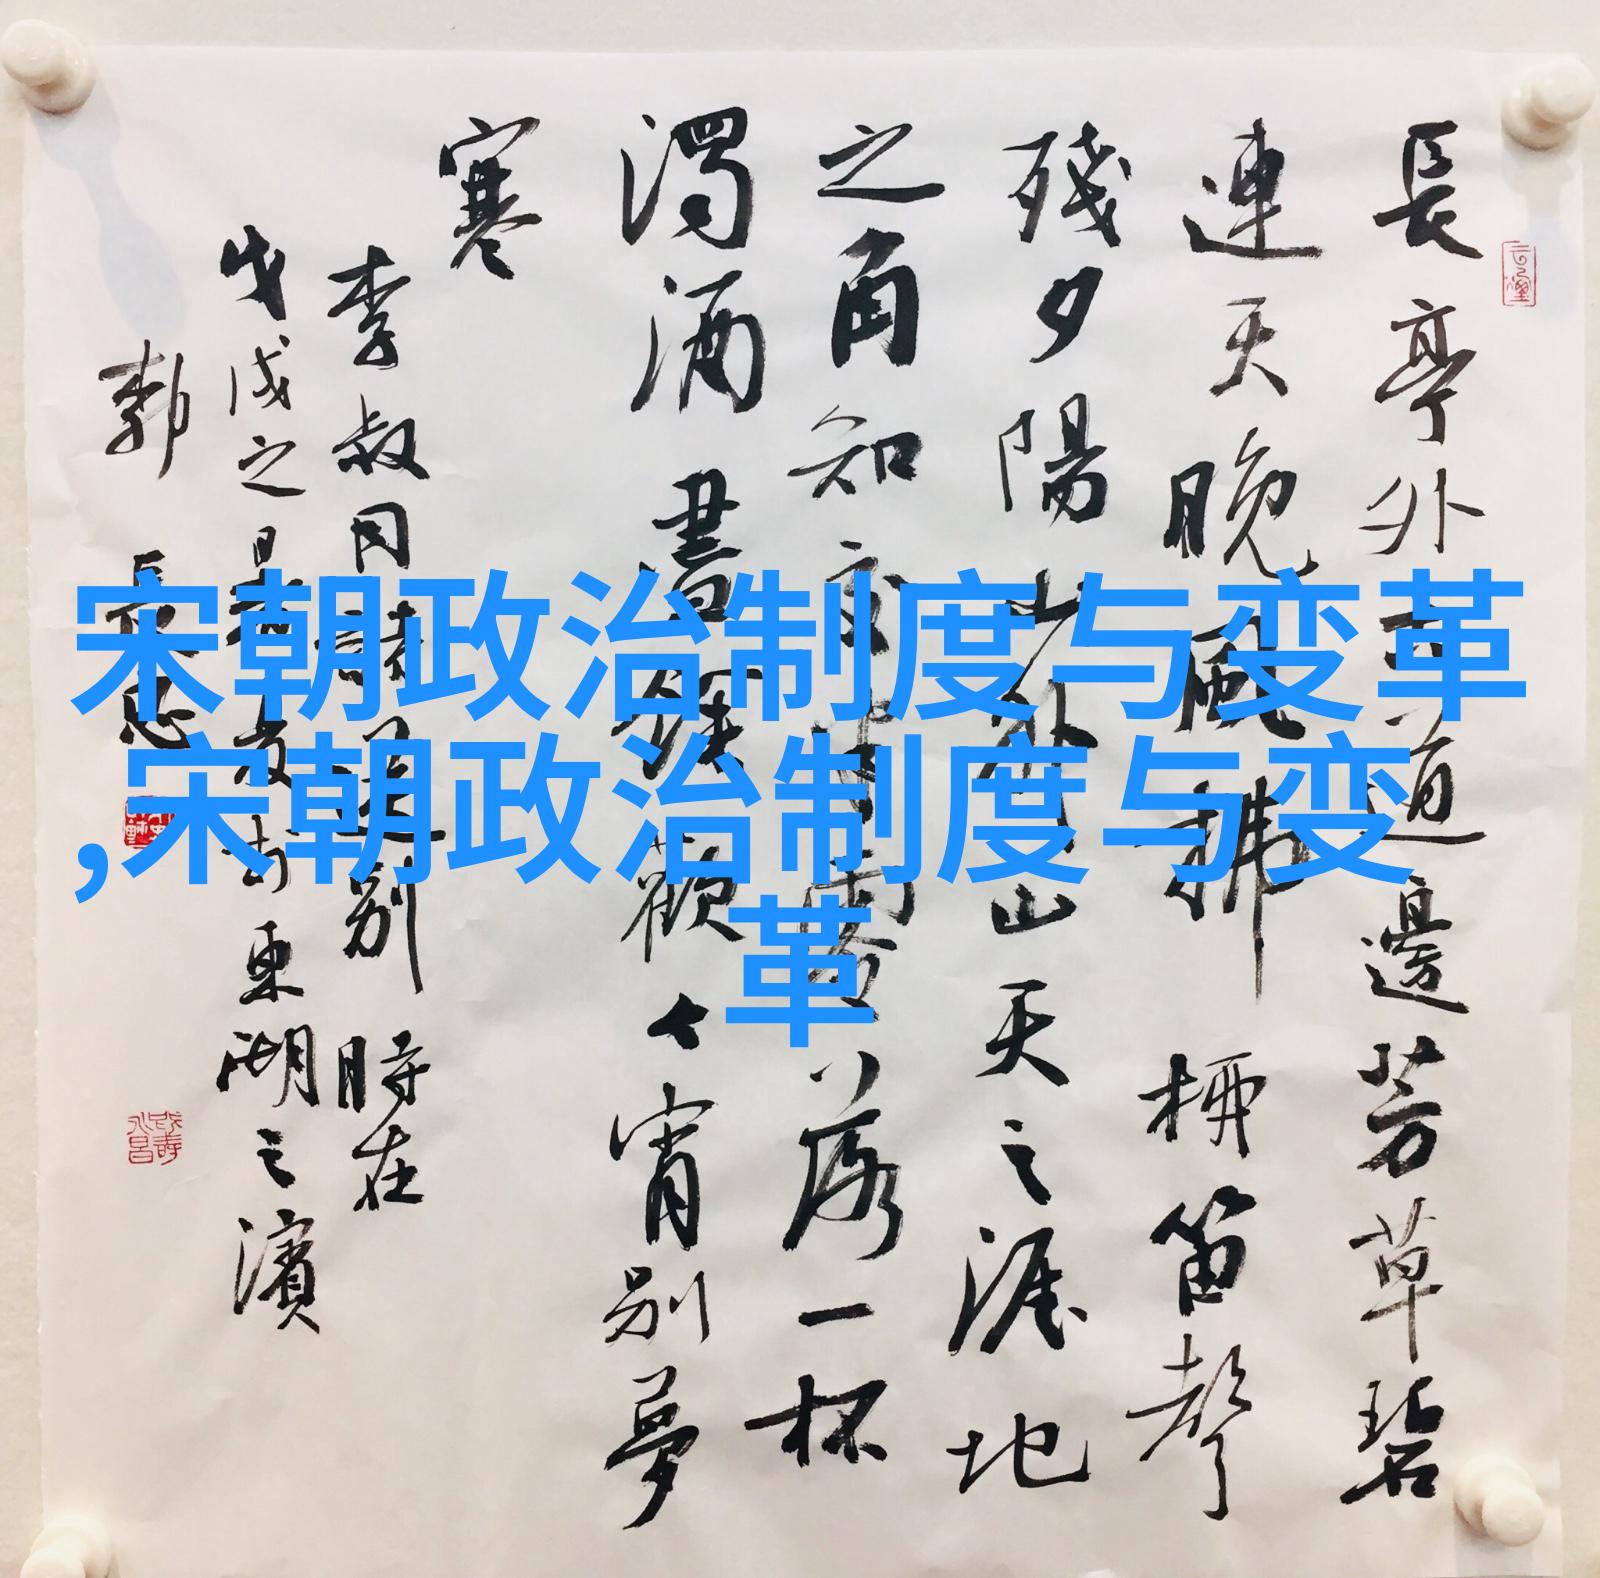 宋朝政治制度与变革
,宋朝政治制度与变
革
長亭外古道邊芳草碧
連天晚風拂柳笛聲
殘夕陽山外山天之涯地
之角知交半零落一杯
濁酒盡餘歡今宵别夢
寒
李叔同詩送别時在
戊戌之夏於東湖之濱